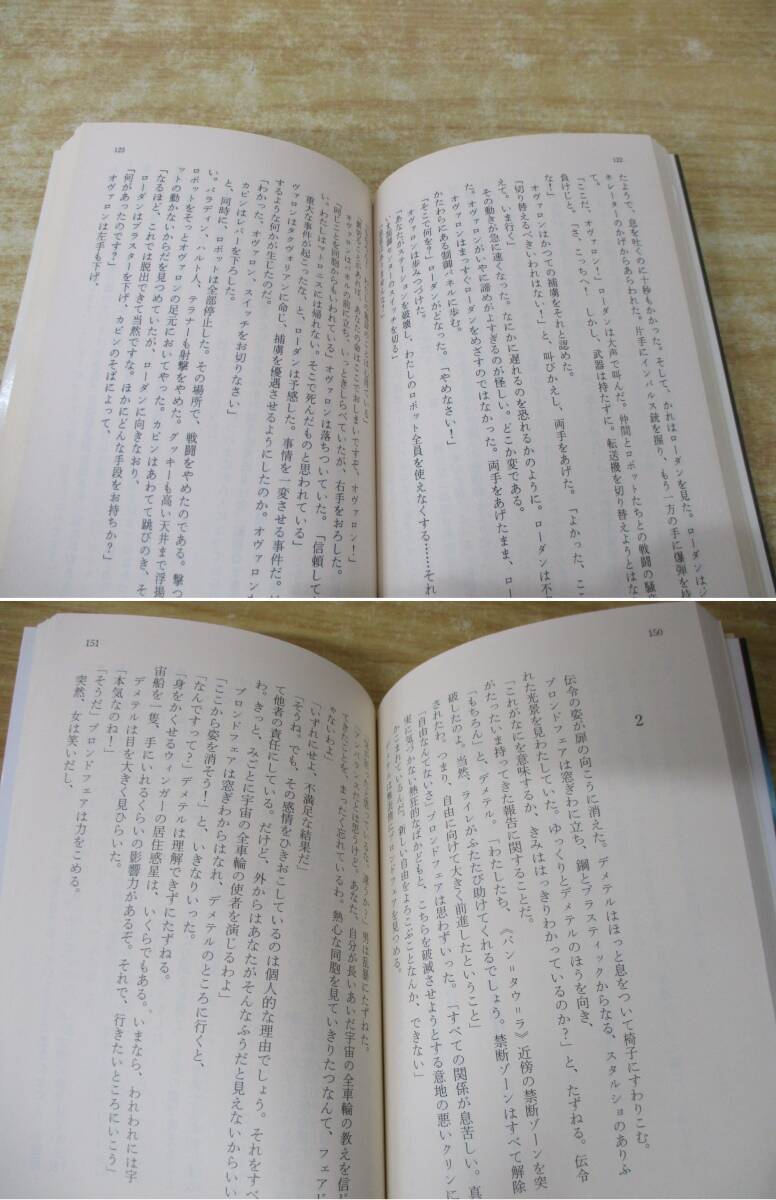 122
たようで、息を吐くのに十秒もかかった。そして、かれはローダンを見た。ローダンはジ
ネレーターのかげからあらわれた。片手にインパルス銃を握り、もう一方の手に爆弾を持
て。
「ここだ、オヴァロン！」ローダンは大声で叫んだ。仲間とロボットたちとの戦闘の騒
負けじと、「さ、こっちへ！ しかし、武器は持たずに。転送機を切り替えようとはな
な！」
オヴァロンはかつての捕虜をそれと認めた。
「切り替えるべきいわれはない！」と、叫びかえし、両手をあげた。「よかった、こ
えて。いま行く」
その動きが急に速くなった。なにかに遅れるのを恐れるかのように。ローダンは不
た。オヴァロンがいやに諦めがよすぎるのが怪しい。どこか変である。
オヴァロンはまっすぐローダンをめざすのではなかった。両手をあげたまま、ロー
かたわらにある制御パネルに歩む。
「そこで何を？」ローダンがどなった。「やめなさい！」
オヴァロンは歩みつづけた。
「あなたがステーションを破壊し、わたしのロボット全員を使えなくする……それ
123
オヴァロンはパネルの前に立ち、いっときしらべていたが、右手をおろした。
「何じことを同胞からもいわれている」オヴァロンは落ちついていた。「信頼して
い。わたしはメトロニスには帰れない。そこで死んだものと思われている」
重大な事件が起こったな、と、ローダンは予感した。事情を一変させる事件だ。
ヴァロンはタクヴォリアンに命じ、捕虜を優遇させるようにしたのか。オヴァロンが
するような何かが生じたのだ。
「わかった、オヴァロン、スイッチをお切りなさい」
カピンはレバーを下ろした。
と、同時に、ロボットは全部停止した。その場所で、戦闘をやめたのである。撃つ
い。パラディン、ハルト人、テラナーも射撃をやめた。グッキーも高い天井まで浮揚
ロボットをそっとオヴァロンの足元においてやった。カピンはあわてて跳びのき、そ
ットの動かないからだを見つめていたが、ローダンに向きなおり、
「なるほど、これでは脱出できて当然ですな。ほかにどんな手段をお持ちか？」
ローダンはブラスターを下げ、カピンのそばによって、
「何があったのです？」
オヴァロンは左手も下げ、
150
2
伝令の姿が扉の向こうに消えた。デメテルはほっと息をついて椅子にすわりこむ。
ブロンドフェアは窓ぎわに立ち、鋼とプラスティックからなる、スタルショのありふ
れた光景を見わたしていた。ゆっくりとデメテルのほうを向き、
「これがなにを意味するか、きみははっきりわかっているのか？」と、たずねる。伝令
がたったいま持ってきた報告に関することだ。
「もちろん」と、デメテル。「わたしたち、《パン＝タウ＝ラ》近傍の禁断ゾーンを突
破したのよ。当然、ライレがふたたび助けてくれるでしょう。禁断ゾーンはすべて解除
されたわ。つまり、自由に向けて大きく前進したということ」
「自由なんてないさ」ブロンドフェアは思わずいった。「すべての関係が息苦しい。真
実に気づかない熱狂的なばかどもと、こちらを破滅させようとする意地の悪いクリンに
かこまれているんだ。新しい自由をよろこぶことなんか、できない」
151
できたことを、まったく忘れているわ。熱心な同胞を見ていきりたつなんて、フェアじ
ゃないわよ」
「いずれにせよ、不満足な結果だ」
「そうね。でも、その感情をひきおこしているのは個人的な理由でしょう。それをすべ
て他者の責任にしている。だけど、外からはあなたがそんなふうだと見えないからいい
わ。きっと、みごとに宇宙の全車輪の使者を演じるわよ」
ブロンドフェアは窓ぎわからはなれ、デメテルのところに行くと、
「ここから姿を消そう！」と、いきなりいった。
「なんですって？」デメテルは理解できずにたずねる。
「身をかくせるウィンガーの居住惑星は、いくらでもある。いまなら、われわれには宇
宙船を一隻、手にいれるくらいの影響力があるぞ。それで、行きたいところにいこう」
デメテルは目を大きく見ひらいた。
「本気なのね！」
「そうだ」ブロンドフェアは力をこめる。
突然、女は笑いだし、